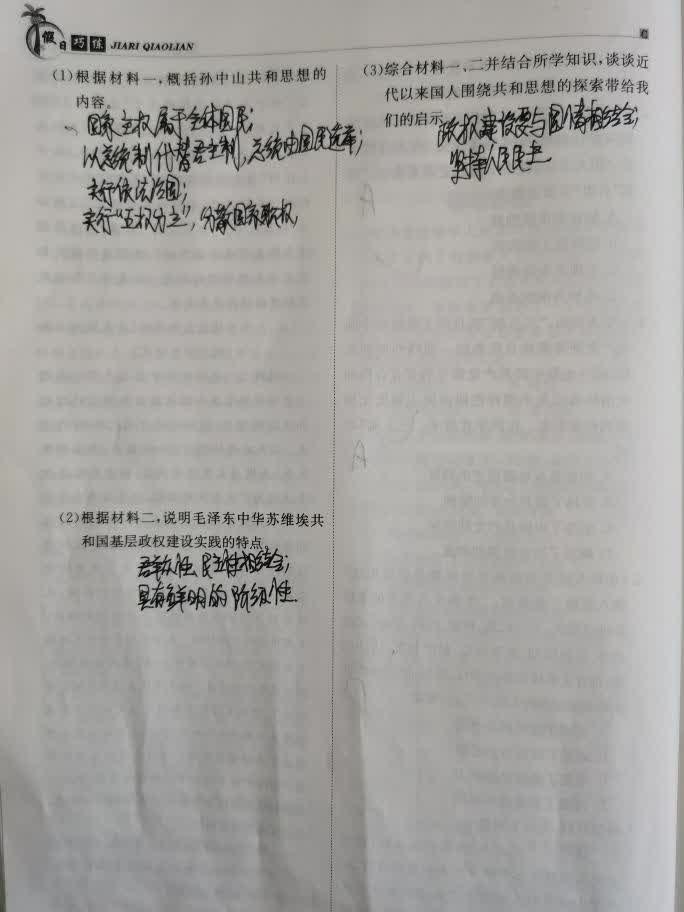 假日巧练 JIARI QIAOLIAN
(1)根据材料一,概括孙中山共和思想的
内容。
国家主权属于全体国民;
以总统制代替君主制,总统由国民选举;
实行依法治国;
实行“五权分立”,分散国家职权,
(2)根据材料二,说明毛泽东中华苏维埃共
和国基层政权建设实践的特点
群众性、民主性相结合;
具有鲜明的阶级性.
(3)综合材料一、二并结合所学知识,谈谈近
代以来国人围绕共和思想的探索带给我
们的启示
政权建设要与国情相结合;
坚持人民民主
A
A